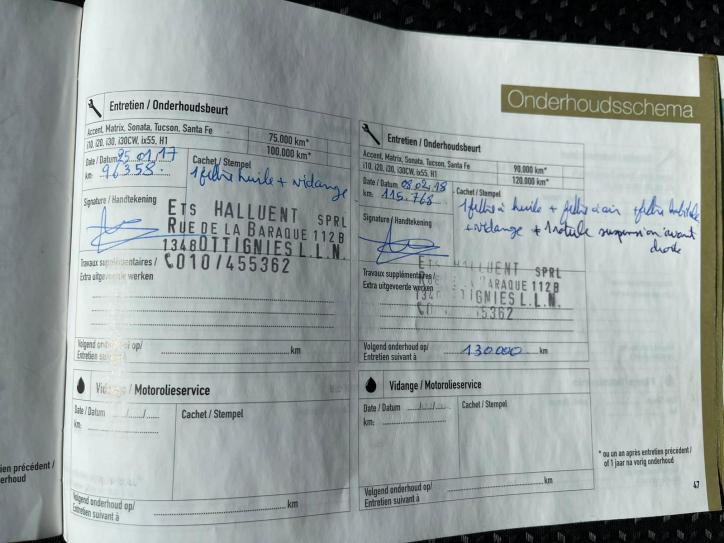 Onderhoudsschema
Entretien / Onderhoudsbeurt
Accent, Matrix, Sonata, Tucson, Santa Fe
i10, i20, i30, i30CW, ix55, H1
75.000 km*
100.000 km*
Date / Datum 25.01.17
km: 96358.
Cachet / Stempel
1 filtre huile + vidange
Signature / Handtekening
ETS HALLUENT SPRL
RUE DE LA BARAQUE 112B
1348 OTTIGNIES L.L.N.
010/455362
Travaux supplémentaires /
Extra uitgevoerde werken
Volgend onderhoud op/
Entretien suivant à
km
Vidange / Motorolieservice
Date / Datum
km:
Cachet / Stempel
Volgend onderhoud op/
Entretien suivant à
km
Entretien / Onderhoudsbeurt
Accent, Matrix, Sonata, Tucson, Santa Fe
i10, i20, i30, i30CW, ix55, H1
90.000 km*
120.000 km*
Date / Datum 08.02.18
km: 115.768
Cachet / Stempel
1 filtre à huile + filtre à air + filtre habitacle
+ vidange + 1 rotule suspension avant
droite
Signature / Handtekening
HALLUENT SPRL
BARAQUE 112B
TIGNIES L.L.N.
5362
Travaux supplémentaires /
Extra uitgevoerde werken
Volgend onderhoud op/
Entretien suivant à
130.000 km
Vidange / Motorolieservice
Date / Datum
km:
Cachet / Stempel
Volgend onderhoud op/
Entretien suivant à
km
* ou un an après entretien précédent /
of 1 jaar na vorig onderhoud
47
ien précédent /
erhoud